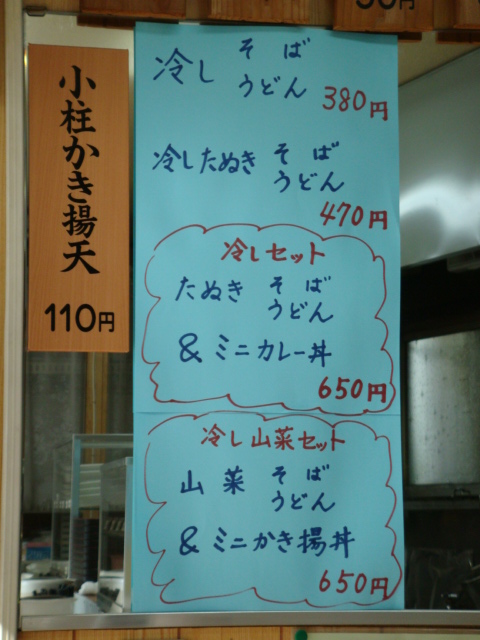 小柱かき揚天
110円
冷し そば
うどん
380円
冷したぬき そば
うどん
470円
冷しセット
たぬき そば
うどん
& ミニカレー丼
650円
冷し山菜セット
山菜 そば
うどん
& ミニかき揚丼
650円